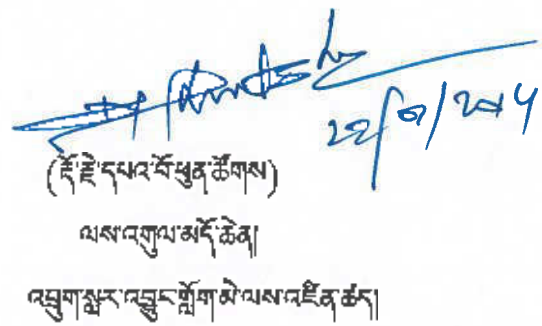 (རྡོ་རྗེ་དཔའ་བོ་ཕུན་ཚོགས)
ལས་འགུལ་མདོ་ཆེན།
འབྲུག་སླར་འབྱུང་གློག་མེ་ལས་འཛིན་ཚད།